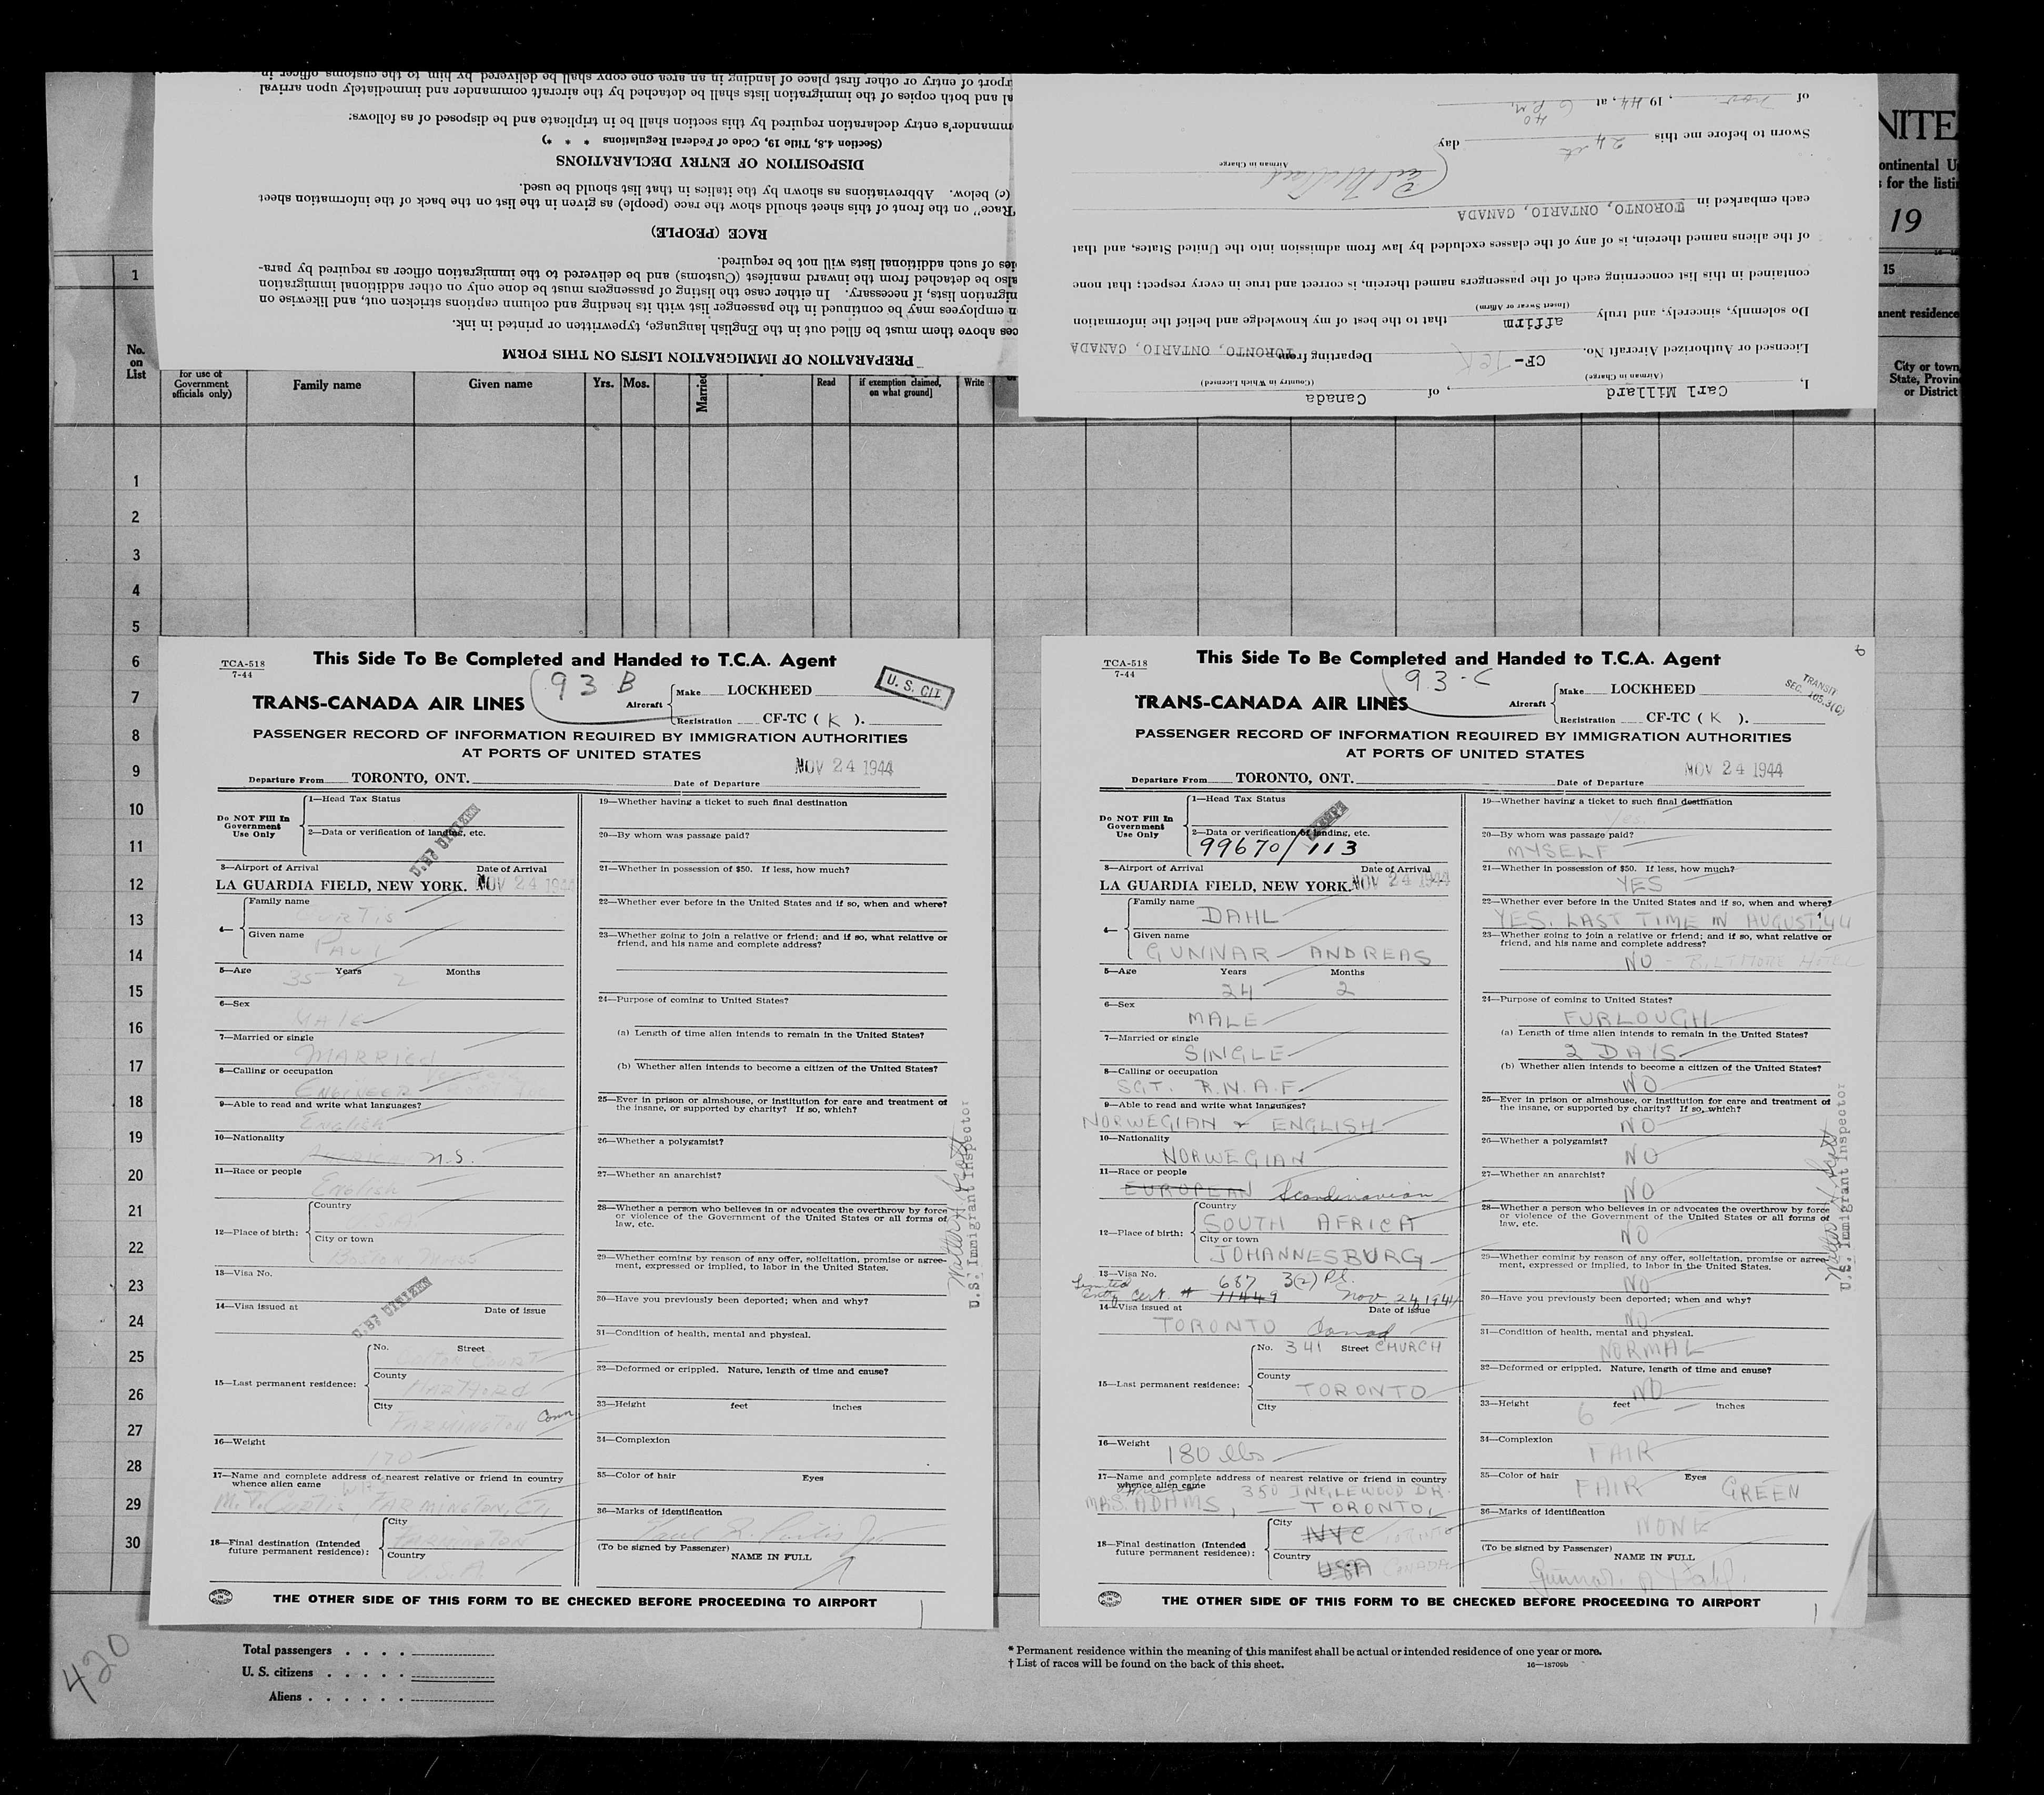 port of entry or other first place of landing in an area one copy shall be delivered by him to the customs officer in
al and both copies of the immigration lists shall be detached by the aircraft commander and immediately upon arrival
mmander's entry declaration required by this section shall be in triplicate and be disposed of as follows:
(Section 4.8, Title 19, Code of Federal Regulations * * *)
DISPOSITION OF ENTRY DECLARATIONS
(c) below. Abbreviations as shown by the italics in that list should be used.
"Race" on the front of this sheet should show the race (people) as given in the list on the back of the information sheet
RACE (PEOPLE)
ies of such additional lists will not be required.
also be detached from the inward manifest (Customs) and be delivered to the immigration officer as required by para-
migration lists, if necessary. In either case the listing of passengers must be done only on other additional immigration
n employees may be continued in the passenger list with its heading and column captions stricken out, and likewise on
ces above them must be filled out in the English language, typewritten or printed in ink.
PREPARATION OF IMMIGRATION LISTS ON THIS FORM
I, Carl Millard, of Canada
(Airman in Charge) (Country in Which Licensed)
Licensed or Authorized Aircraft No. CF-TCK Departing from TORONTO, ONTARIO, CANADA
Do solemnly, sincerely, and truly affirm that to the best of my knowledge and belief the information
(Insert Swear or Affirm)
contained in this list concerning each of the passengers named therein, is correct and true in every respect; that none
of the aliens named therein, is of any of the classes excluded by law from admission into the United States, and that
each embarked in TORONTO, ONTARIO, CANADA
Airman in Charge
Sworn to before me this 24th day
of Nov, 1944, at 6 40 P.M.
NITE
ontinental U
s for the listi
19
15
anent residence
City or town
State, Provin
or District
1
No.
on
List
for use of
Government
officials only)
Family name
Given name
Yrs.
Mos.
Married
Read
if exemption claimed,
on what ground]
Write
1
2
3
4
5
6
7
8
9
10
11
12
13
14
15
16
17
18
19
20
21
22
23
24
25
26
27
28
29
30
TCA-518
7-44
This Side To Be Completed and Handed to T.C.A. Agent
93 B
U. S. CIT
TRANS-CANADA AIR LINES
Aircraft
Make LOCKHEED
Registration CF-TC ( K ).
PASSENGER RECORD OF INFORMATION REQUIRED BY IMMIGRATION AUTHORITIES
AT PORTS OF UNITED STATES
Departure From TORONTO, ONT. Date of Departure NOV 24 1944
Do NOT Fill In
Government
Use Only
1—Head Tax Status
2—Data or verification of landing, etc.
U.S. CITIZEN
3—Airport of Arrival Date of Arrival
LA GUARDIA FIELD, NEW YORK. NOV 24 1944
4—
Family name
Curtis
Given name
Paul
5—Age Years Months
35 2
6—Sex
Male
7—Married or single
Married
8—Calling or occupation
Engineer
9—Able to read and write what languages?
English
10—Nationality
U.S.
11—Race or people
English
12—Place of birth:
Country
City or town
Boston Mass
13—Visa No.
U.S. CITIZEN
14—Visa issued at Date of issue
15—Last permanent residence:
No. Street
County
Hartford
City
Farmington Conn
16—Weight
170
17—Name and complete address of nearest relative or friend in country
whence alien came
Curtis Farmington, Ct.
18—Final destination (Intended
future permanent residence):
City
Farmington
Country
U.S.A.
19—Whether having a ticket to such final destination
20—By whom was passage paid?
21—Whether in possession of $50. If less, how much?
22—Whether ever before in the United States and if so, when and where?
23—Whether going to join a relative or friend; and if so, what relative or
friend, and his name and complete address?
24—Purpose of coming to United States?
(a) Length of time alien intends to remain in the United States?
(b) Whether alien intends to become a citizen of the United States?
25—Ever in prison or almshouse, or institution for care and treatment of
the insane, or supported by charity? If so, which?
26—Whether a polygamist?
27—Whether an anarchist?
28—Whether a person who believes in or advocates the overthrow by force
or violence of the Government of the United States or all forms of
law, etc.
29—Whether coming by reason of any offer, solicitation, promise or agree-
ment, expressed or implied, to labor in the United States.
30—Have you previously been deported; when and why?
31—Condition of health, mental and physical.
32—Deformed or crippled. Nature, length of time and cause?
33—Height feet inches
34—Complexion
35—Color of hair Eyes
36—Marks of identification
Paul R. Curtis Jr
(To be signed by Passenger) NAME IN FULL
U.S. Immigrant Inspector
THE OTHER SIDE OF THIS FORM TO BE CHECKED BEFORE PROCEEDING TO AIRPORT
TCA-518
7-44
This Side To Be Completed and Handed to T.C.A. Agent
6
93-C
TRANSIT
SEC. 105.3(C)
TRANS-CANADA AIR LINES
Aircraft
Make LOCKHEED
Registration CF-TC ( K ).
PASSENGER RECORD OF INFORMATION REQUIRED BY IMMIGRATION AUTHORITIES
AT PORTS OF UNITED STATES
Departure From TORONTO, ONT. Date of Departure NOV 24 1944
Do NOT Fill In
Government
Use Only
1—Head Tax Status
2—Data or verification of landing, etc.
99670/113
3—Airport of Arrival Date of Arrival
LA GUARDIA FIELD, NEW YORK. NOV 24 1944
4—
Family name
DAHL
Given name
GUNNAR ANDREAS
5—Age Years Months
24 2
6—Sex
MALE
7—Married or single
SINGLE
8—Calling or occupation
SGT. R.N.A.F.
9—Able to read and write what languages?
NORWEGIAN & ENGLISH
10—Nationality
NORWEGIAN
11—Race or people
EUROPEAN Scandinavian
12—Place of birth:
Country
SOUTH AFRICA
City or town
JOHANNESBURG
13—Visa No. 687 3(2) Pl.
Limited Entry Cert. # 11449 Nov 24, 1944
14—Visa issued at Date of issue
TORONTO Canad
15—Last permanent residence:
No. 341 Street CHURCH
County
TORONTO
City
16—Weight
180 lbs
17—Name and complete address of nearest relative or friend in country
whence alien came 350 INGLEWOOD DR.
MRS. ADAMS, TORONTO,
18—Final destination (Intended
future permanent residence):
City
NYC TORONTO
Country
USA CANADA
19—Whether having a ticket to such final destination
Yes.
20—By whom was passage paid?
MYSELF
21—Whether in possession of $50. If less, how much?
YES
22—Whether ever before in the United States and if so, when and where?
YES. LAST TIME IN AUGUST '44
23—Whether going to join a relative or friend; and if so, what relative or
friend, and his name and complete address?
NO - BILTMORE HOTEL
24—Purpose of coming to United States?
FURLOUGH
(a) Length of time alien intends to remain in the United States?
2 DAYS
(b) Whether alien intends to become a citizen of the United States?
NO
25—Ever in prison or almshouse, or institution for care and treatment of
the insane, or supported by charity? If so, which?
NO
26—Whether a polygamist?
NO
27—Whether an anarchist?
NO
28—Whether a person who believes in or advocates the overthrow by force
or violence of the Government of the United States or all forms of
law, etc.
NO
29—Whether coming by reason of any offer, solicitation, promise or agree-
ment, expressed or implied, to labor in the United States.
NO
30—Have you previously been deported; when and why?
NO
31—Condition of health, mental and physical.
NORMAL
32—Deformed or crippled. Nature, length of time and cause?
NO
33—Height feet inches
6
34—Complexion
FAIR
35—Color of hair Eyes
FAIR GREEN
36—Marks of identification
NONE
(To be signed by Passenger) NAME IN FULL
Gunnar. A. Dahl.
U.S. Immigrant Inspector
THE OTHER SIDE OF THIS FORM TO BE CHECKED BEFORE PROCEEDING TO AIRPORT
420
Total passengers . . . .
U. S. citizens . . . . .
Aliens . . . . . .
* Permanent residence within the meaning of this manifest shall be actual or intended residence of one year or more.
† List of races will be found on the back of this sheet.
16—18709b